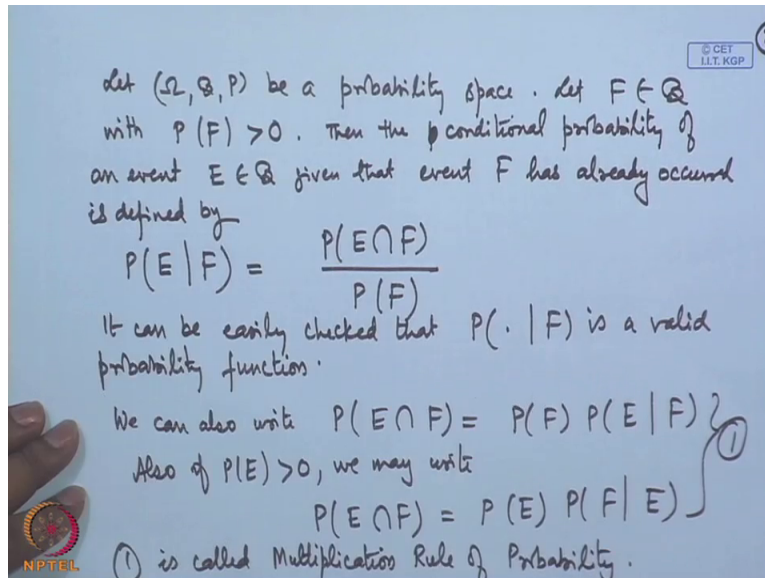 © CET
I.I.T. KGP
Let (Ω, ℬ, P) be a probability space. Let F ∈ ℬ
with P(F) > 0. Then the conditional probability of
an event E ∈ ℬ given that event F has already occurred
is defined by
P(E | F) = P(E ∩ F) / P(F)
It can be easily checked that P(· | F) is a valid
probability function.
We can also write P(E ∩ F) = P(F) P(E | F)
Also if P(E) > 0, we may write
P(E ∩ F) = P(E) P(F | E)
①
① is called Multiplication Rule of Probability.
NPTEL